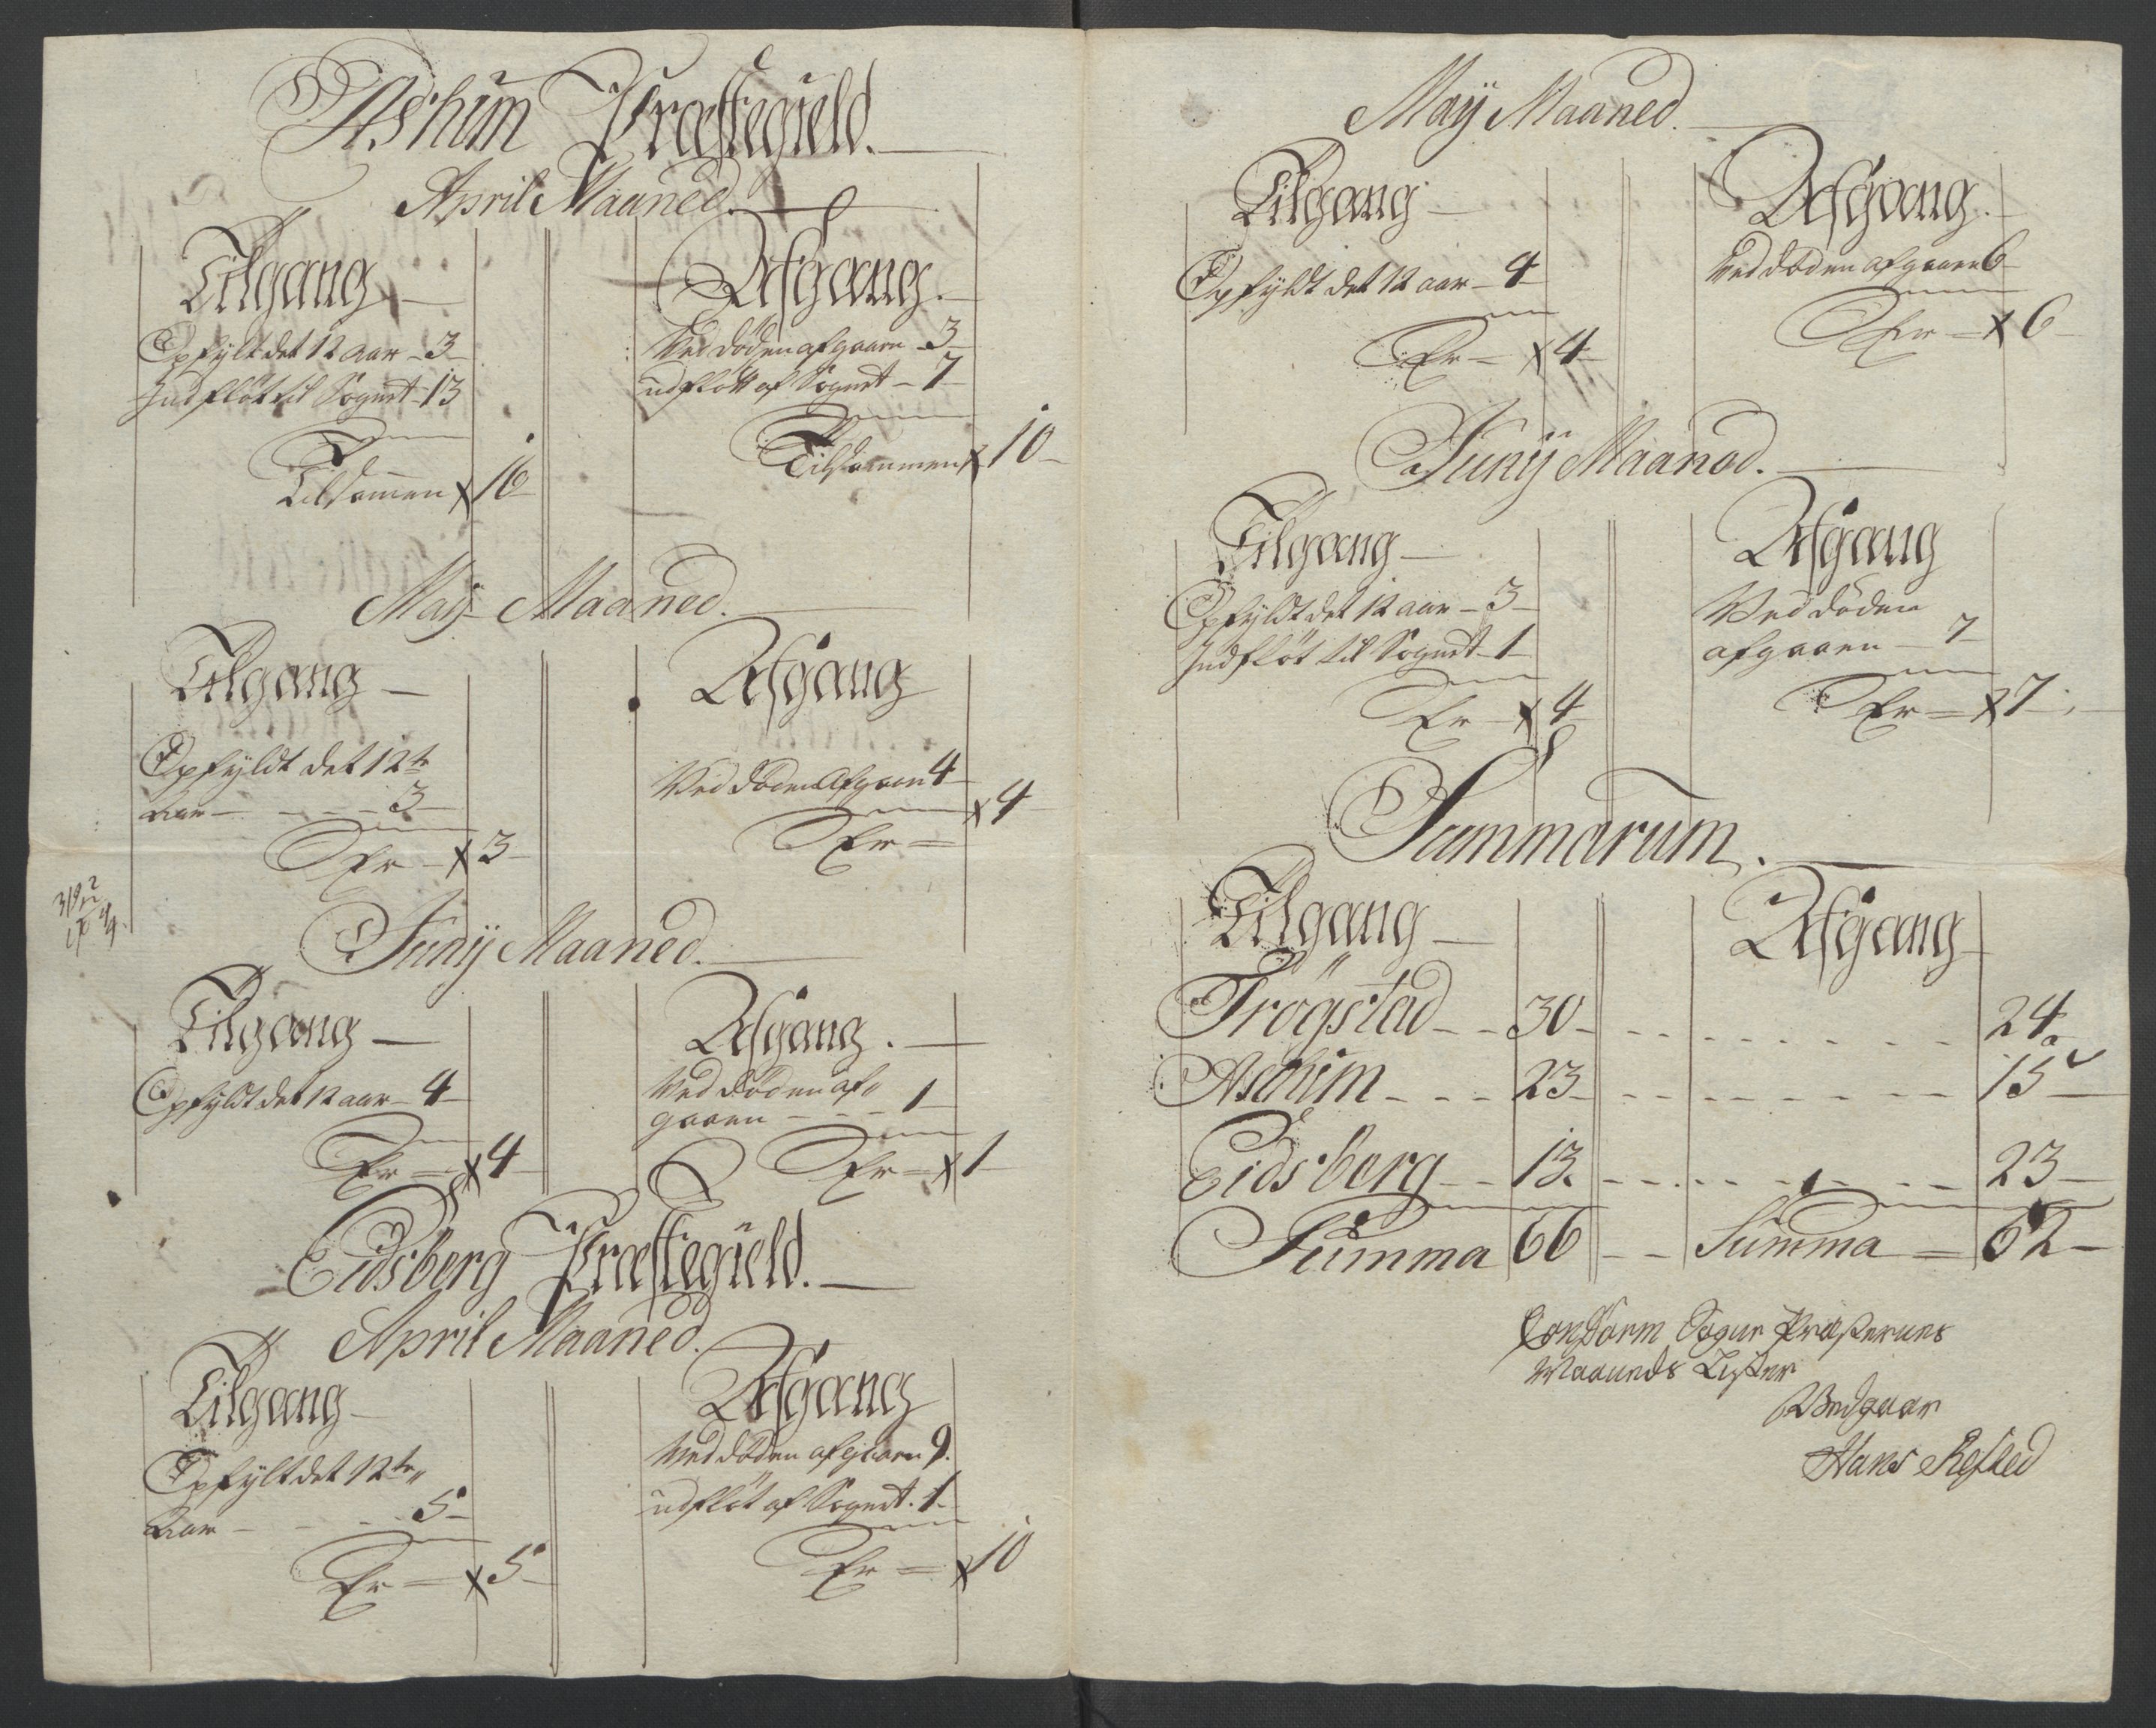 Ashim Præstegield.
April Maaned.
Tilgang
Opfylt det 12 aar - 3
Indfløt til Sognet - 13
Tilsamen x 16
Afgang.
Ved døden afgaaen - 3
udfløtt af Sognet - 7
Tilsammen x 10
Maij Maaned.
Tilgang
Opfyldt det 12te
Aar - - - 3
Er - x 3
Afgang
Ved døden Afgaaen 4
Er = x 4
Junij Maaned.
Tilgang
Opfyldt det 12 aar - 4
Er = x 4
Afgang.
Ved døden af„
gaaen - - - 1
Er = x 1
Eidsberg Præstegield.
April Maaned.
Tilgang
Opfylt det 12te„
Aar - - - 5
Er = x 5
Afgang
Ved døden afgaaen 9.
udfløt af Sognet. 1
Er = x 10
Maij Maaned.
Tilgang
Opfyldt det 12 aar - 4
Er = x 4
Afgang.
Ved døden afgaaen 6
Er = x 6
Junij Maaned.
Tilgang
Opfyldt det 12 aar - 3
Indfløt til Sognet - 1
Er - x 4
Afgang
Ved døden
afgaaen - 7
Er = x 7
Summarum.
Tilgang Afgang
Trögstad - - 30 - - - 24
Aschim - - - 23 - - - 15
Eidsberg - - 13. - - - 23
Summa 66 - - Summa = 62
Conform Sogne Præsternes
Maaneds Lister
Hans Refsted